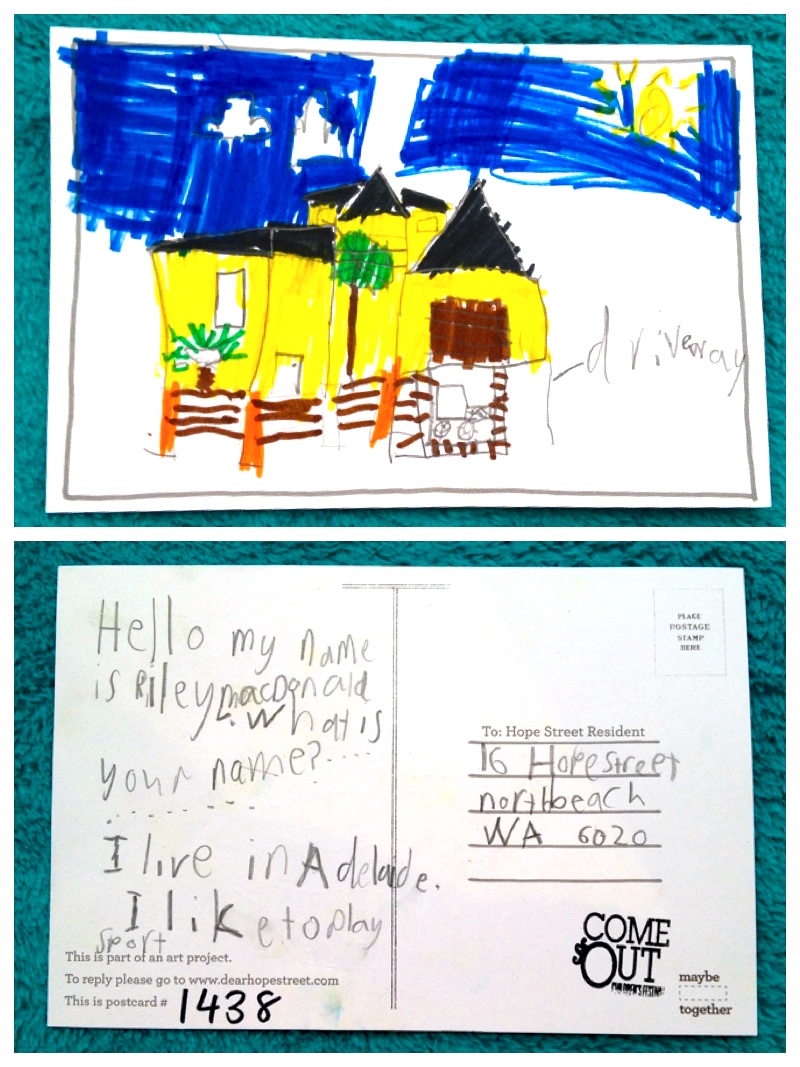 driveway
Hello my name
is Riley macDonald
. What is
your name? ....
..........
I live in Adelaide.
I like to play
sport
This is part of an art project.
To reply please go to www.dearhopestreet.com
This is postcard # 1438
PLACE
POSTAGE
STAMP
HERE
To: Hope Street Resident
16 Hope street
north beach
WA 6020
COME
OUT
CHILDREN'S FESTIVAL
maybe
together